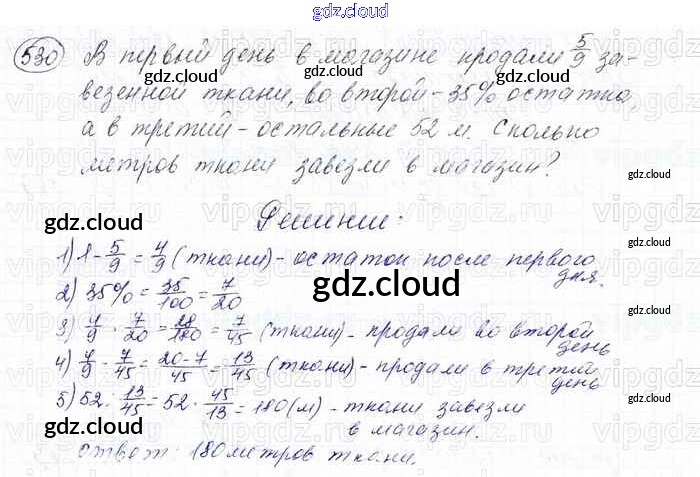 gdz.cloud
530 В первый день в магазине продали 5/9 за-
везенной ткани, во второй - 35% остатка,
а в третий - остальные 52 м. Сколько
метров ткани завезли в магазин?
Решение:
1) 1 - 5/9 = 4/9 (ткани) - остаток после первого
дня.
2) 35% = 35/100 = 7/20
3) 4/9 · 7/20 = 28/180 = 7/45 (ткани) - продали во второй
день
4) 4/9 - 7/45 = (20-7)/45 = 13/45 (ткани) - продали в третий
день
5) 52 : 13/45 = 52 · 45/13 = 180 (м) - ткани завезли
в магазин.
Ответ: 180 метров ткани.
gdz.cloud
gdz.cloud
gdz.cloud
gdz.cloud
gdz.cloud
gdz.cloud
gdz.cloud
gdz.cloud
gdz.cloud
gdz.cloud
gdz.cloud
gdz.cloud
gdz.cloud